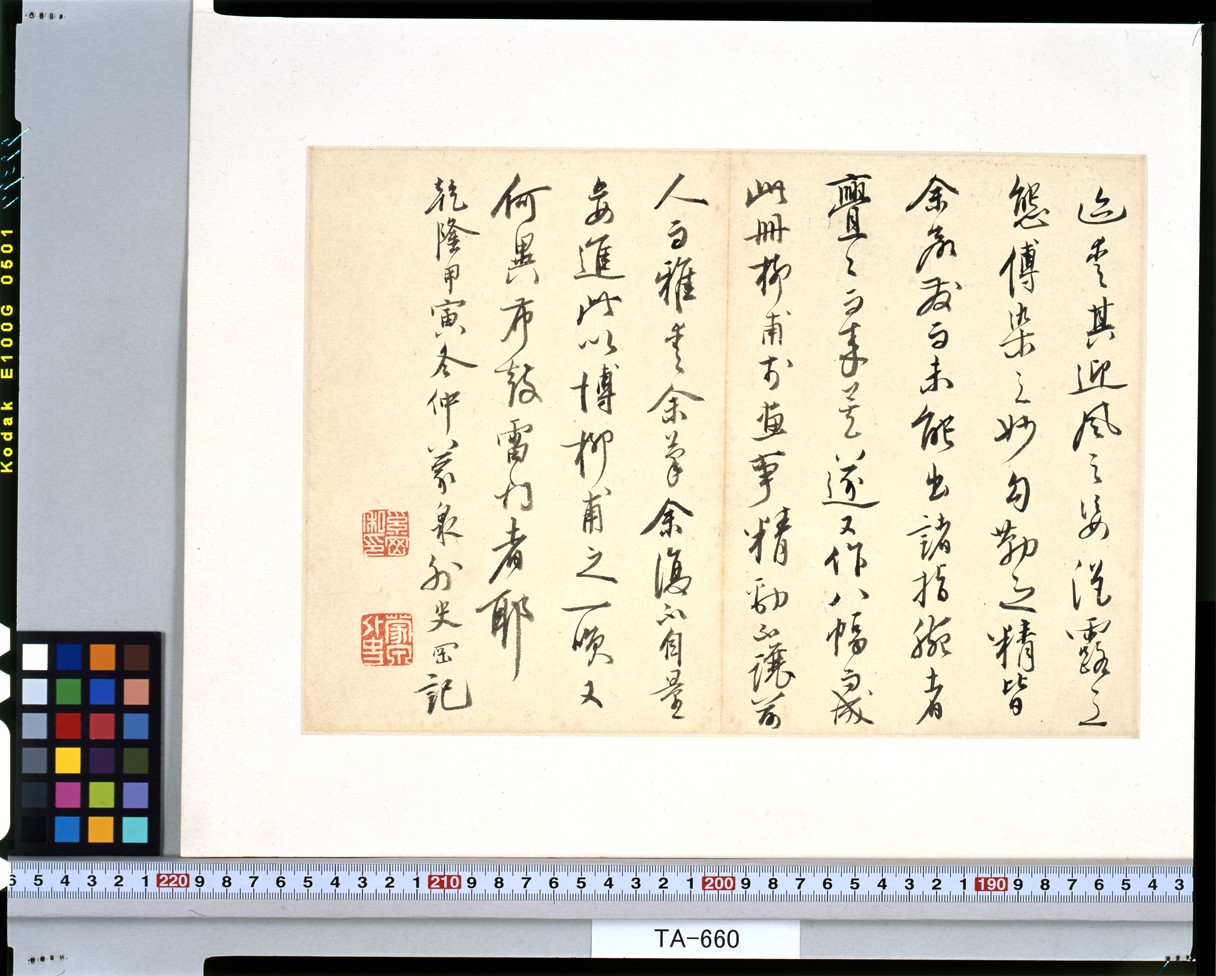 愛其迎風之姿浥露之
態傅染之妙勾勒之精皆
余而未能出諸指腕者
亹〻而來遂又作八幅而成
此冊柳甫於畫事精勤不讓前
人而雅愛余筆余復不自量
妄進此以博柳甫之一噱又
何異布鼓雷門者耶
乾隆甲寅冬仲蒙泉外史岡記
奚岡私印
蒙泉外史
Kodak E100G 0501
6 5 4 3 2 1 220 9 8 7 6 5 4 3 2 1 210 9 8 7 6 5 4 3 2 1 200 9 8 7 6 5 4 3 2 1 190 9 8 7 6 5 4 3
TA-660